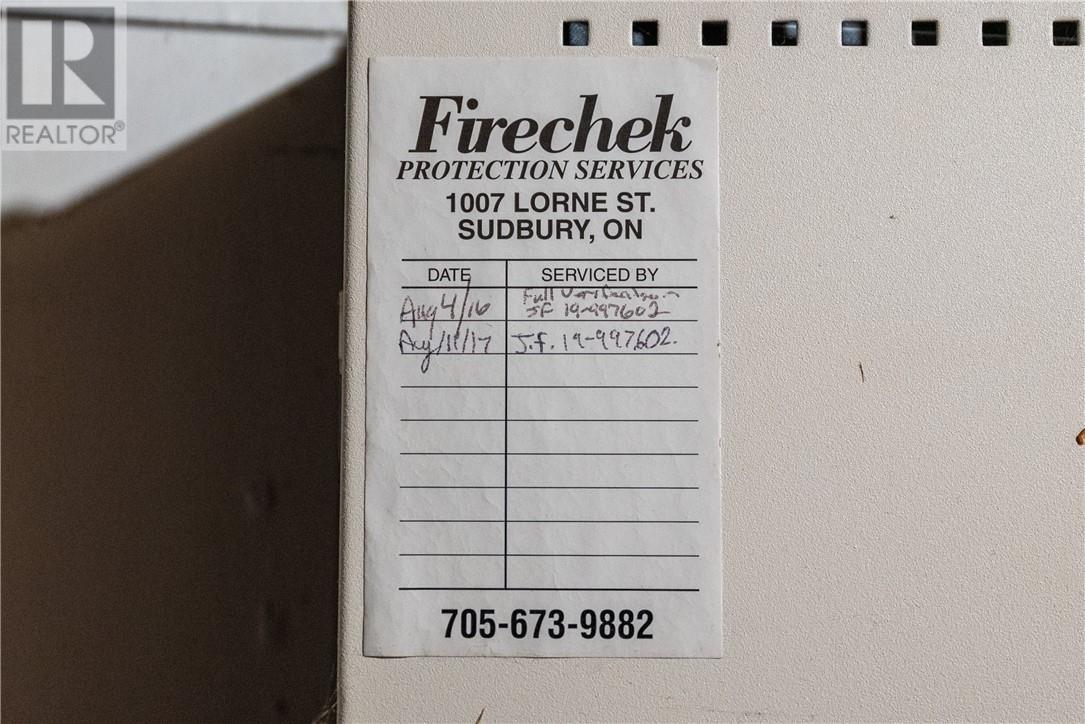 REALTOR®
Firechek
PROTECTION SERVICES
1007 LORNE ST.
SUDBURY, ON
DATE SERVICED BY
Full Verification
Aug 4/16 JF 19-997602
Aug/11/17 J.f. 19-997602.
705-673-9882